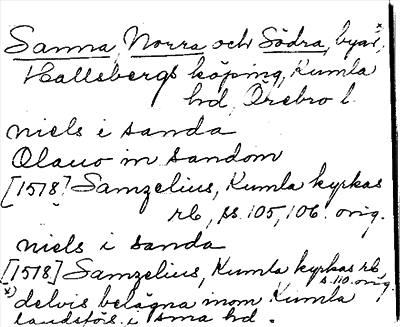 Sanna, Norra och Södra, byar*,
Hallsbergs köping, Kumla
hd, Örebro l.
niels i sanda
Olauo in sandom
[1578] Samzelius, Kumla kyrkas
rb, ss. 105, 106. orig.
niels i sanda
[1578] Samzelius, Kumla kyrkas rb
s. 110. orig.
*) delvis belägna inom Kumla
landsförs. i sma hd.